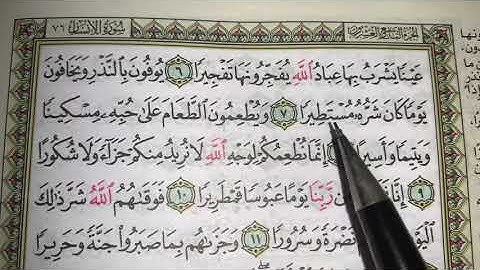 سُورَةُ الإِنسَانِ ٧٦
عَيْنًا يَشْرَبُ بِهَا عِبَادُ ٱللَّهِ يُفَجِّرُونَهَا تَفْجِيرًا ٦ يُوفُونَ بِٱلنَّذْرِ وَيَخَافُونَ
يَوْمًا كَانَ شَرُّهُۥ مُسْتَطِيرًا ٧ وَيُطْعِمُونَ ٱلطَّعَامَ عَلَىٰ حُبِّهِۦ مِسْكِينًا
وَيَتِيمًا وَأَسِيرًا إِنَّمَا نُطْعِمُكُمْ لِوَجْهِ ٱللَّهِ لَا نُرِيدُ مِنكُمْ جَزَآءً وَلَا شُكُورًا
٩ إِنَّا رَّبِّنَا يَوْمًا عَبُوسًا قَمْطَرِيرًا ١٠ فَوَقَىٰهُمُ ٱللَّهُ شَرَّ ذَٰلِكَ
ٱلْيَوْمِ نَضْرَةً وَسُرُورًا ١١ وَجَزَىٰهُم بِمَا صَبَرُوا۟ جَنَّةً وَحَرِيرًا